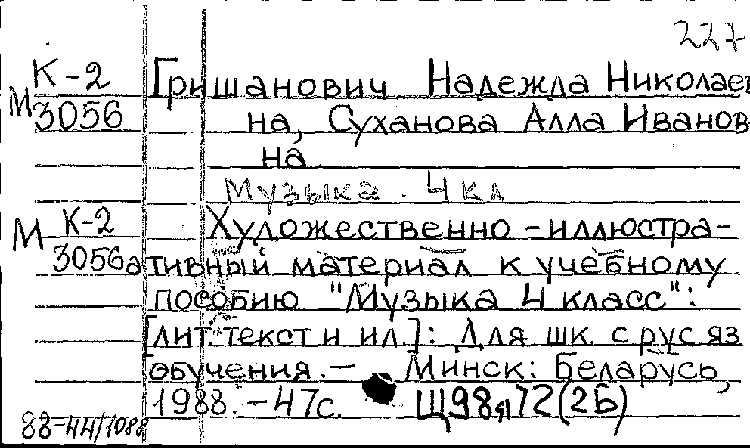 227
К-2
М 3056
Гришанович Надежда Николаев
на, Суханова Алла Иванов
на
Музыка. 4 кл
М К-2
3056а
Художественно-иллюстра-
тивный материал к учебному
пособию "Музыка 4 класс":
[лит. текст и ил.]: Для шк. с рус яз
обучения. — Минск: Беларусь,
1988. -47с. Щ98я72(2Б)
88-44/1088